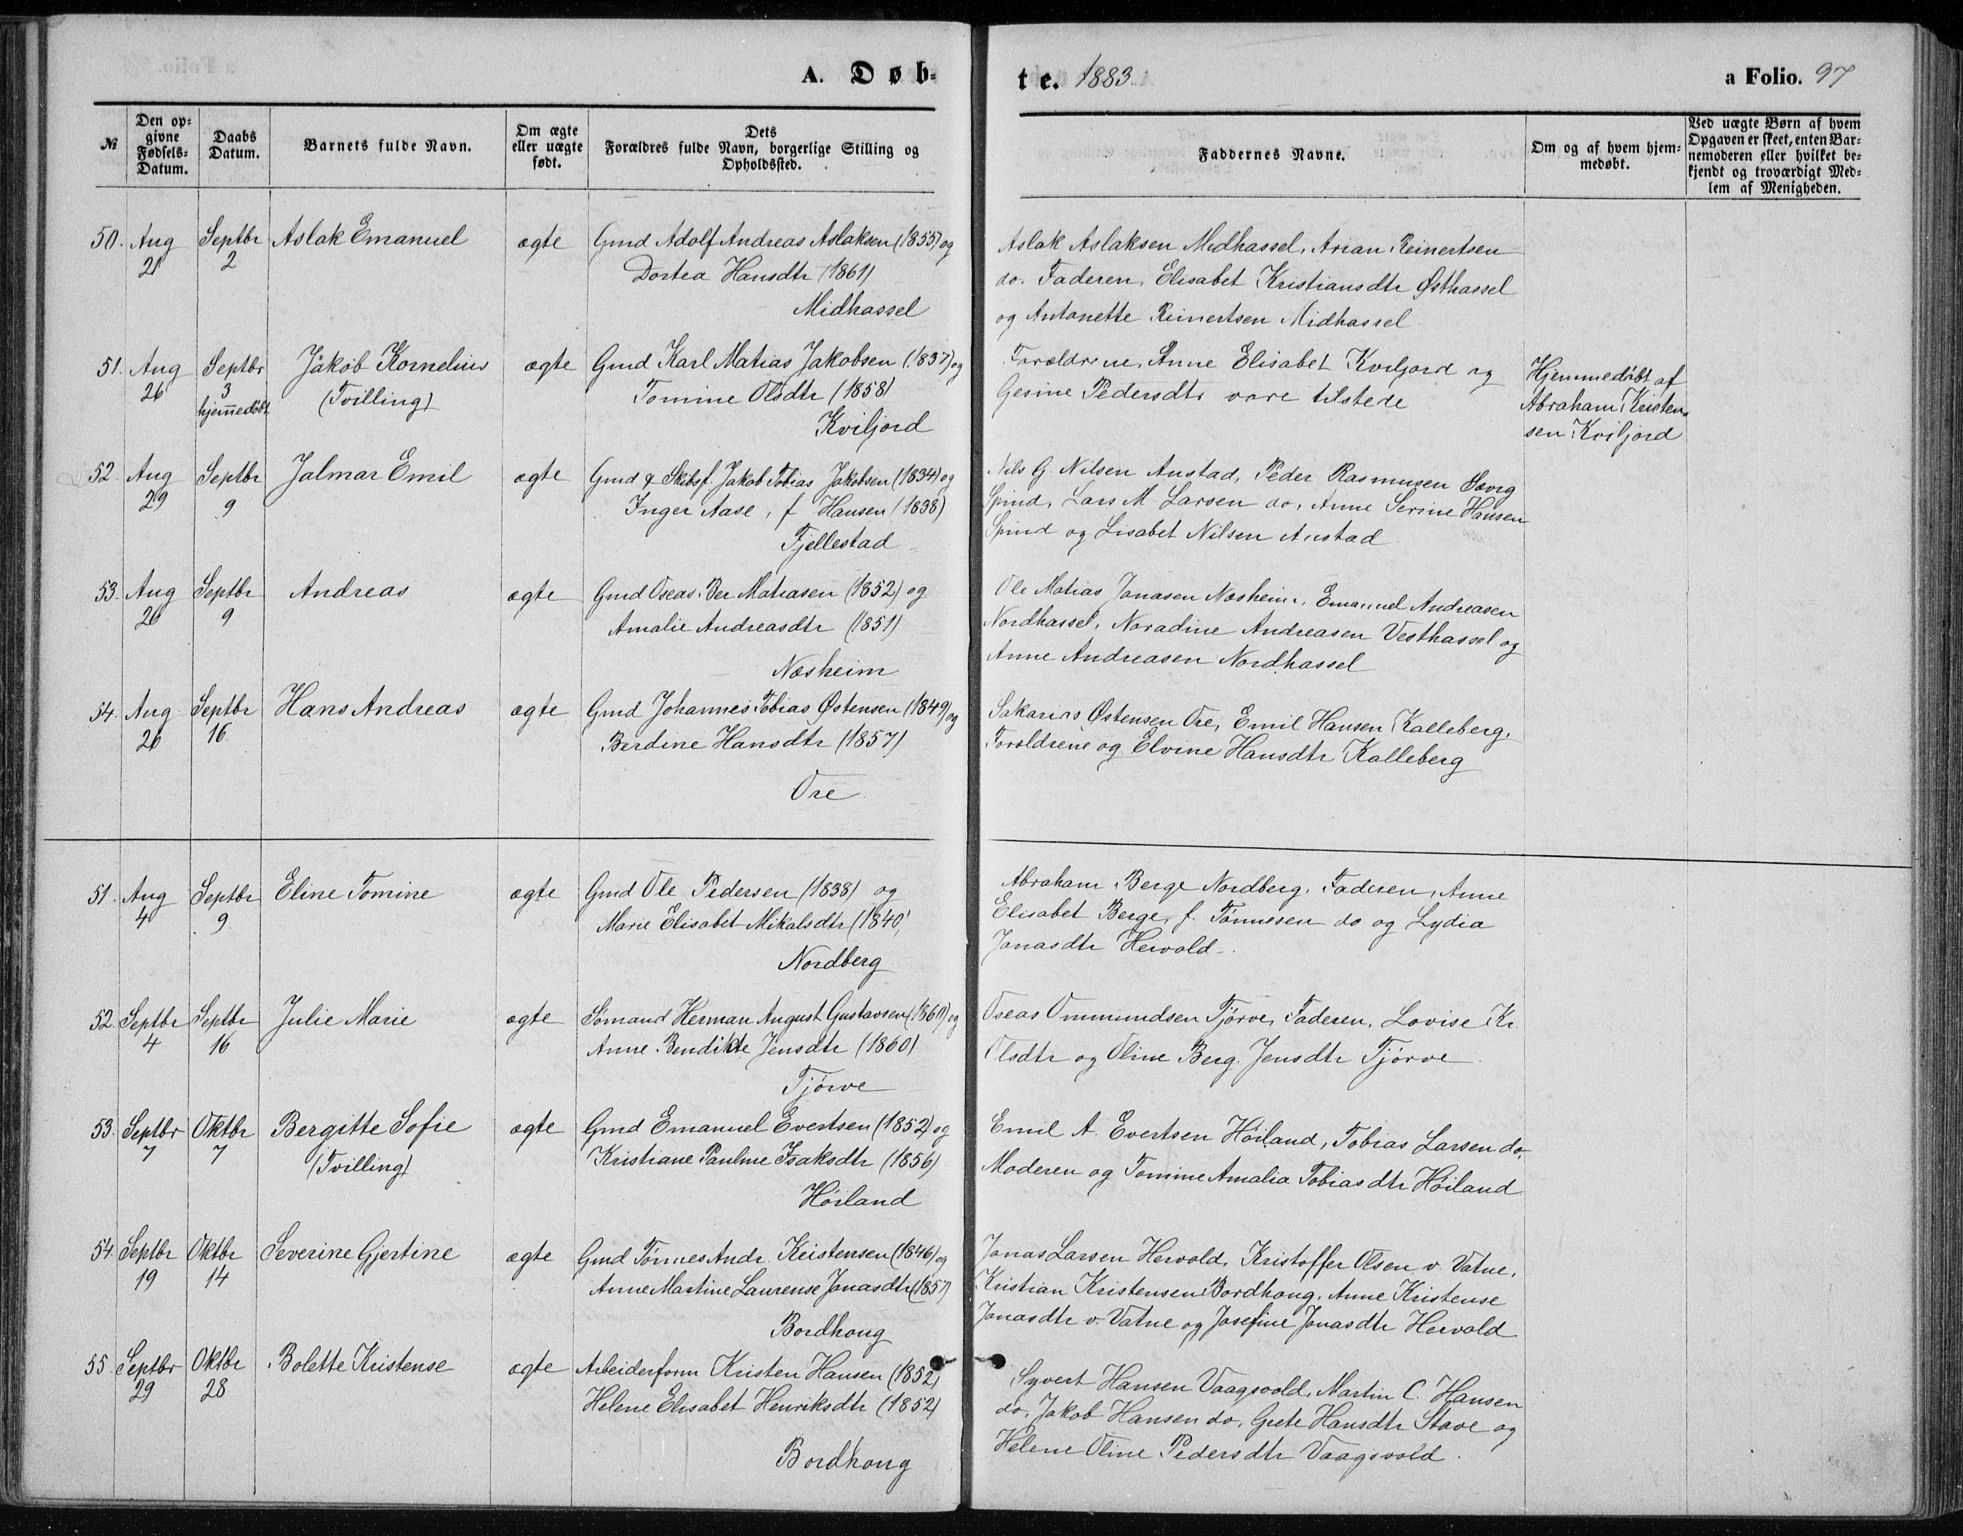 A. Døb-
te. 1883.
a Folio. 97
№
Den op-
givne
Fødsels-
Datum.
Daabs
Datum.
Barnets fulde Navn.
Om ægte
eller uægte
født.
Dets
Forældres fulde Navn, borgerlige Stilling og
Opholdssted.
Faddernes Navne.
Om og af hvem hjem-
medøbt.
Ved uægte Børn af hvem
Opgaven er skeet, enten Bar-
nemoderen eller hvilket be-
kjendt og troværdigt Med-
lem af Menigheden.
50. Aug Septbr Aslak Emanuel ægte Gmd Adolf Andreas Aslaksen (1855) og
21 2 Dortea Hansdtr (1861)
Midhassel
Aslak Aslaksen Midhassel, Arian Reinertsen
do. Faderen, Elisabet Kristiansdtr Østhassel
og Antonette Reinertsen Midhassel
51. Aug Septbr Jakob Kornelius ægte Gmd Karl Matias Jakobsen (1837) og
26 3 (Tvilling) Tomine Olsdtr (1858)
hjemmedøbt Kviljord
Forældrene, Anne Elisabet Kviljord og
Gesine Pedersdtr vare tilstede
Hjemmedøbt af
Abraham Kristen-
sen Kviljord
52. Aug Septbr Jalmar Emil ægte Gmd & Skibsf. Jakob Tobias Jakobsen (1834) og
29 9 Inger Aase, f Hansen (1838)
Fjellestad
Nils G. Nilsen Austad, Peder Rasmusen
Spind, Lars M. Larsen do, Anne Serine Hansen
Spind og Lisabet Nilsen Austad
53. Aug Septbr Andreas ægte Gmd Oseas Ber Matiasen (1852) og
26 9 Amalie Andreasdtr (1851)
Næsheim
Ole Matias Jonasen Næsheim, Emanuel Andreasen
Nordhassel, Noradine Andreasen Vesthassel og
Anne Andreasen Nordhassel
54. Aug Septbr Hans Andreas ægte Gmd Johannes Tobias Østensen (1849) og
26 16 Berdine Hansdtr (1857)
Ore
Sakarias Østensen Ore, Emil Hansen Kalleberg,
Forældrene og Elvine Hansdtr Kalleberg
51. Aug Septbr Eline Tomine ægte Gmd Ole Pedersen (1838) og
4 9 Marie Elisabet Mikalsdtr (1840)
Nordberg
Abraham Berge Nordberg, Faderen, Anne
Elisabet Berge, f. Tønnesen do og Lydia
Jonasdtr Hervold
52. Septbr Septbr Julie Marie ægte Sømand Herman August Gustavsen (1861) og
4 16 Anne Bendikte Jensdtr (1860)
Tjørve
Oseas Ommundsen Tjørve, Faderen, Lovise Kr.
Olsdtr og Oline Berg. Jensdtr Tjørve
53. Septbr Oktbr Bergitte Sofie ægte Gmd Emanuel Evertsen (1852) og
7 7 (Tvilling) Kristiane Pauline Isaksdtr (1856)
Høiland
Emil A. Evertsen Høiland, Tobias Larsen do,
Moderen og Tomine Amalia Tobiasdtr Høiland
54. Septbr Oktbr Severine Gjertine ægte Gmd Tønnes Andr. Kristensen (1846) og
19 14 Anne Martine Laurense Jonasdtr (1857)
Bordhoug
Jonas Larsen Hervold, Kristoffer Olsen v. Vatne,
Kristian Kristensen Bordhoug, Anne Kristense
Jonasdtr v. Vatne og Josefine Jonasdtr Hervold
55 Septbr Oktbr Bolette Kristense ægte Arbeiderform Kristen Hansen (1852)
29 28 Helene Elisabet Henriksdtr (1852)
Bordhoug
Syvert Hansen Vaagsvold, Martin C. Hansen
do, Jakob Hansen do, Grete Hansdtr Stave og
Helene Oline Pedersdtr Vaagsvold.